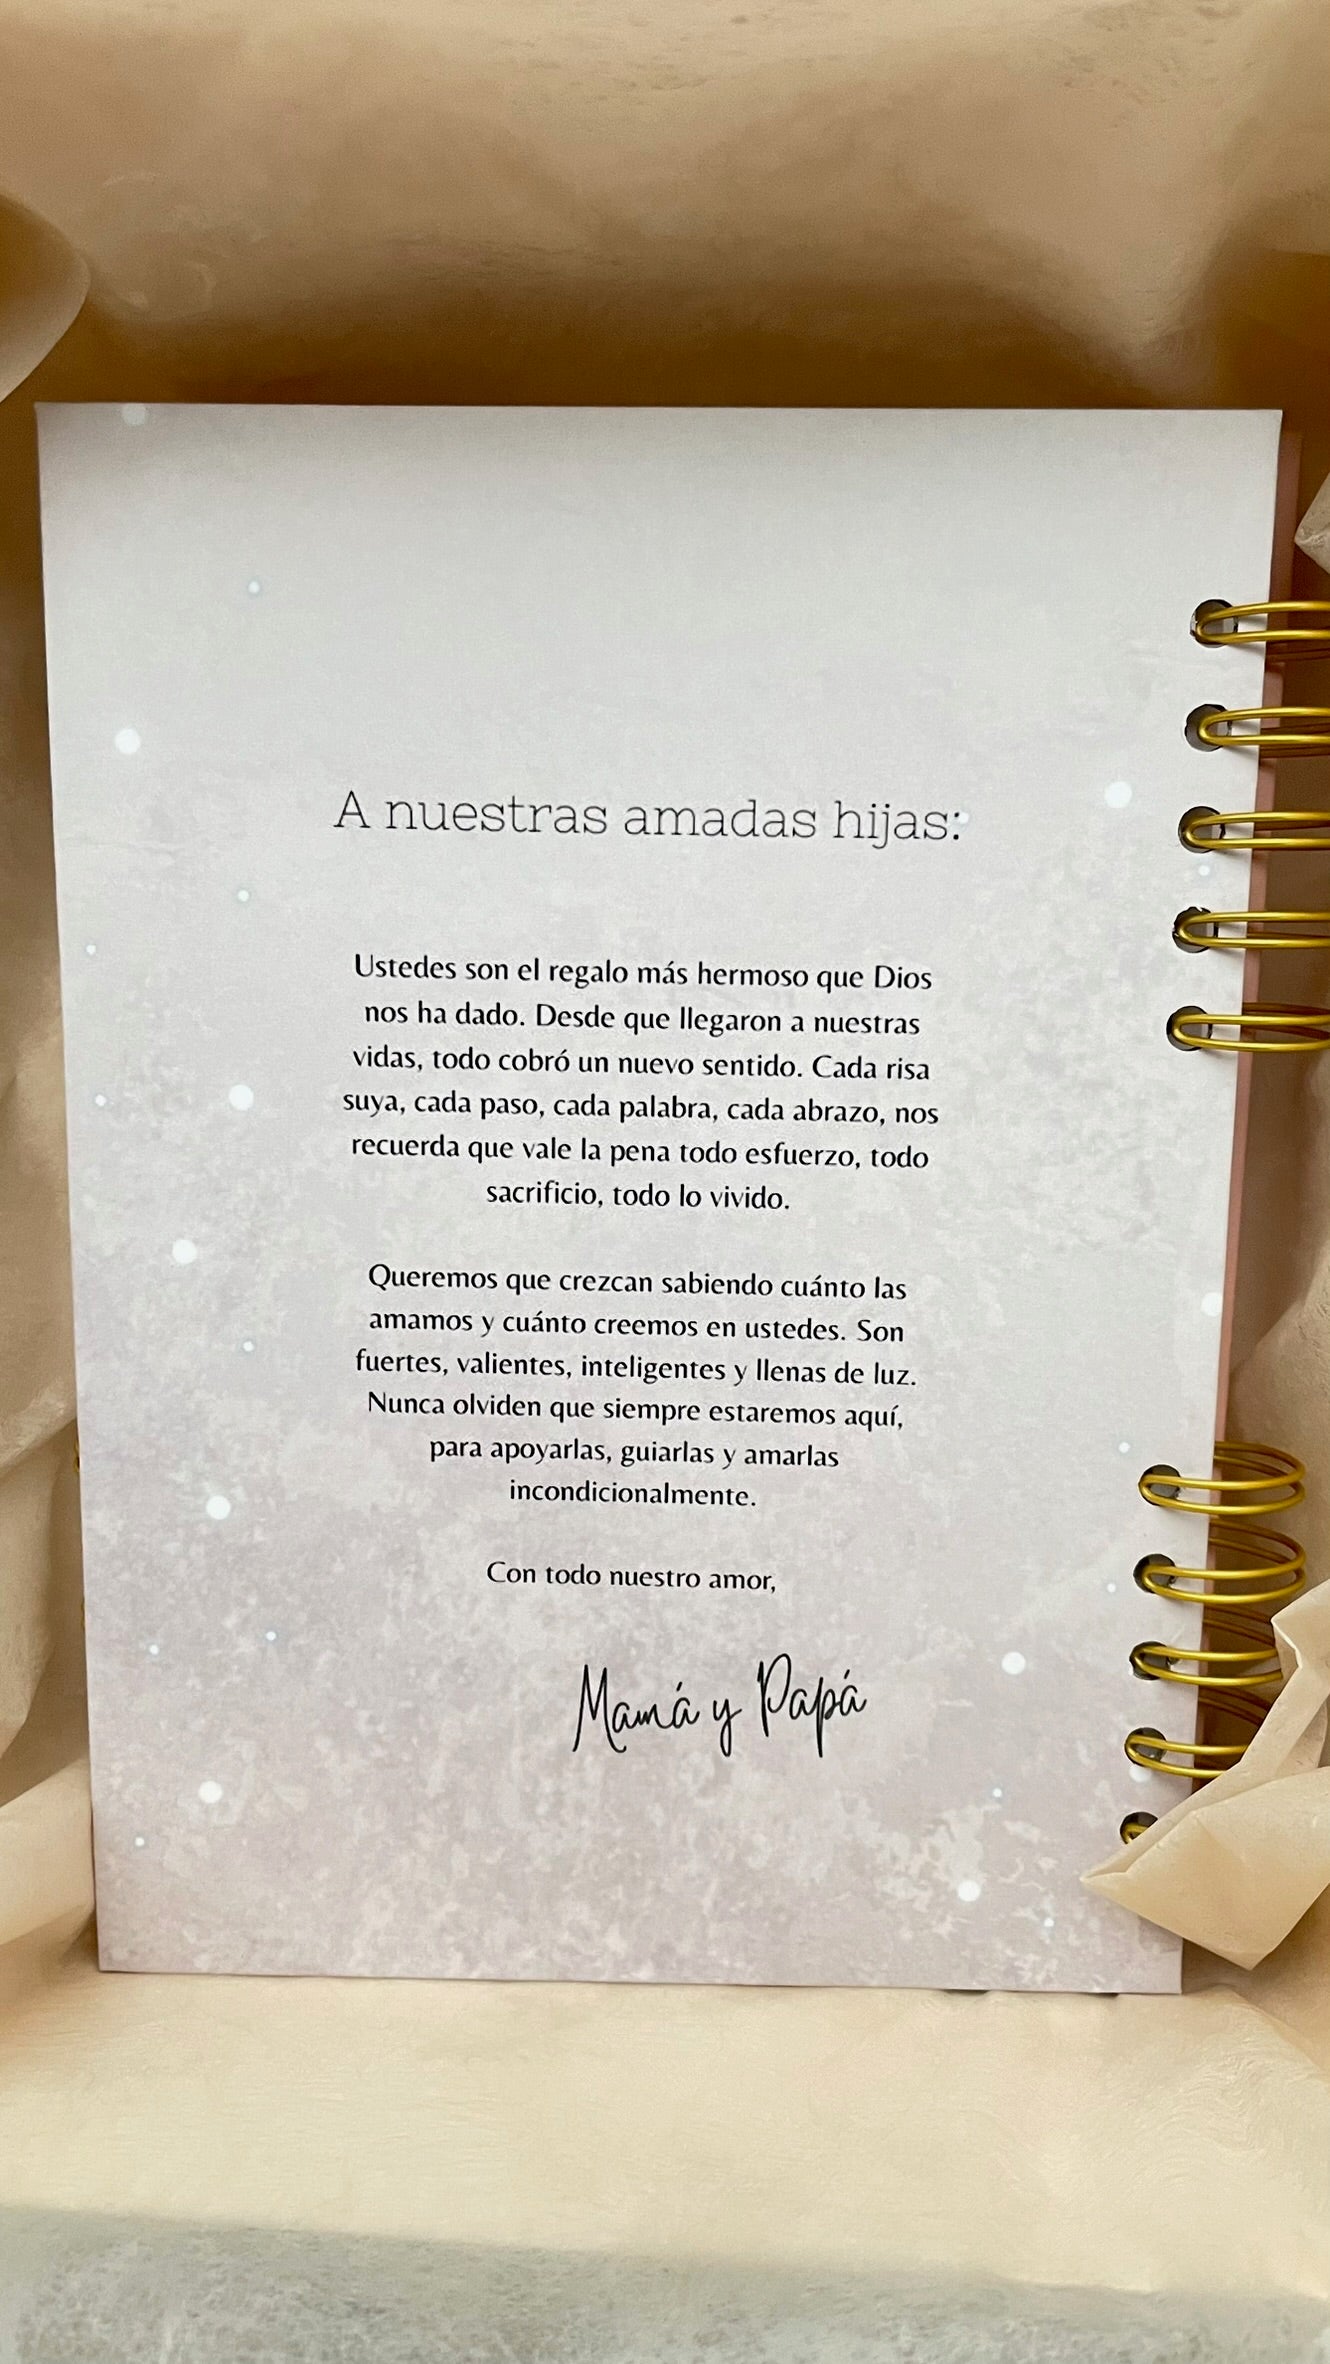 A nuestras amadas hijas:
Ustedes son el regalo más hermoso que Dios
nos ha dado. Desde que llegaron a nuestras
vidas, todo cobró un nuevo sentido. Cada risa
suya, cada paso, cada palabra, cada abrazo, nos
recuerda que vale la pena todo esfuerzo, todo
sacrificio, todo lo vivido.
Queremos que crezcan sabiendo cuánto las
amamos y cuánto creemos en ustedes. Son
fuertes, valientes, inteligentes y llenas de luz.
Nunca olviden que siempre estaremos aquí,
para apoyarlas, guiarlas y amarlas
incondicionalmente.
Con todo nuestro amor,
Mamá y Papá